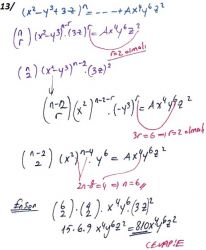 13/ (x²-y³+3z)ⁿ = ---- + Ax⁴y⁶z²
(n r) (x²-y³)ⁿ⁻ʳ · (3z)ʳ = Ax⁴y⁶z²
r=2 olmalı
(n 2) (x²-y³)ⁿ⁻² · (3z)²
(n-2 r) (x²)ⁿ⁻²⁻ʳ · (-y³)ʳ = Ax⁴y⁶z²
3r=6 → r=2 olmalı
(n-2 2) (x²)ⁿ⁻⁴ y⁶ = Ax⁴y⁶z²
2n-8=4 ⇒ n=6
(6 2) · (4 2) · x⁴y⁶(3z)²
15.6.9 x⁴y⁶z² = 810x⁴y⁶z²